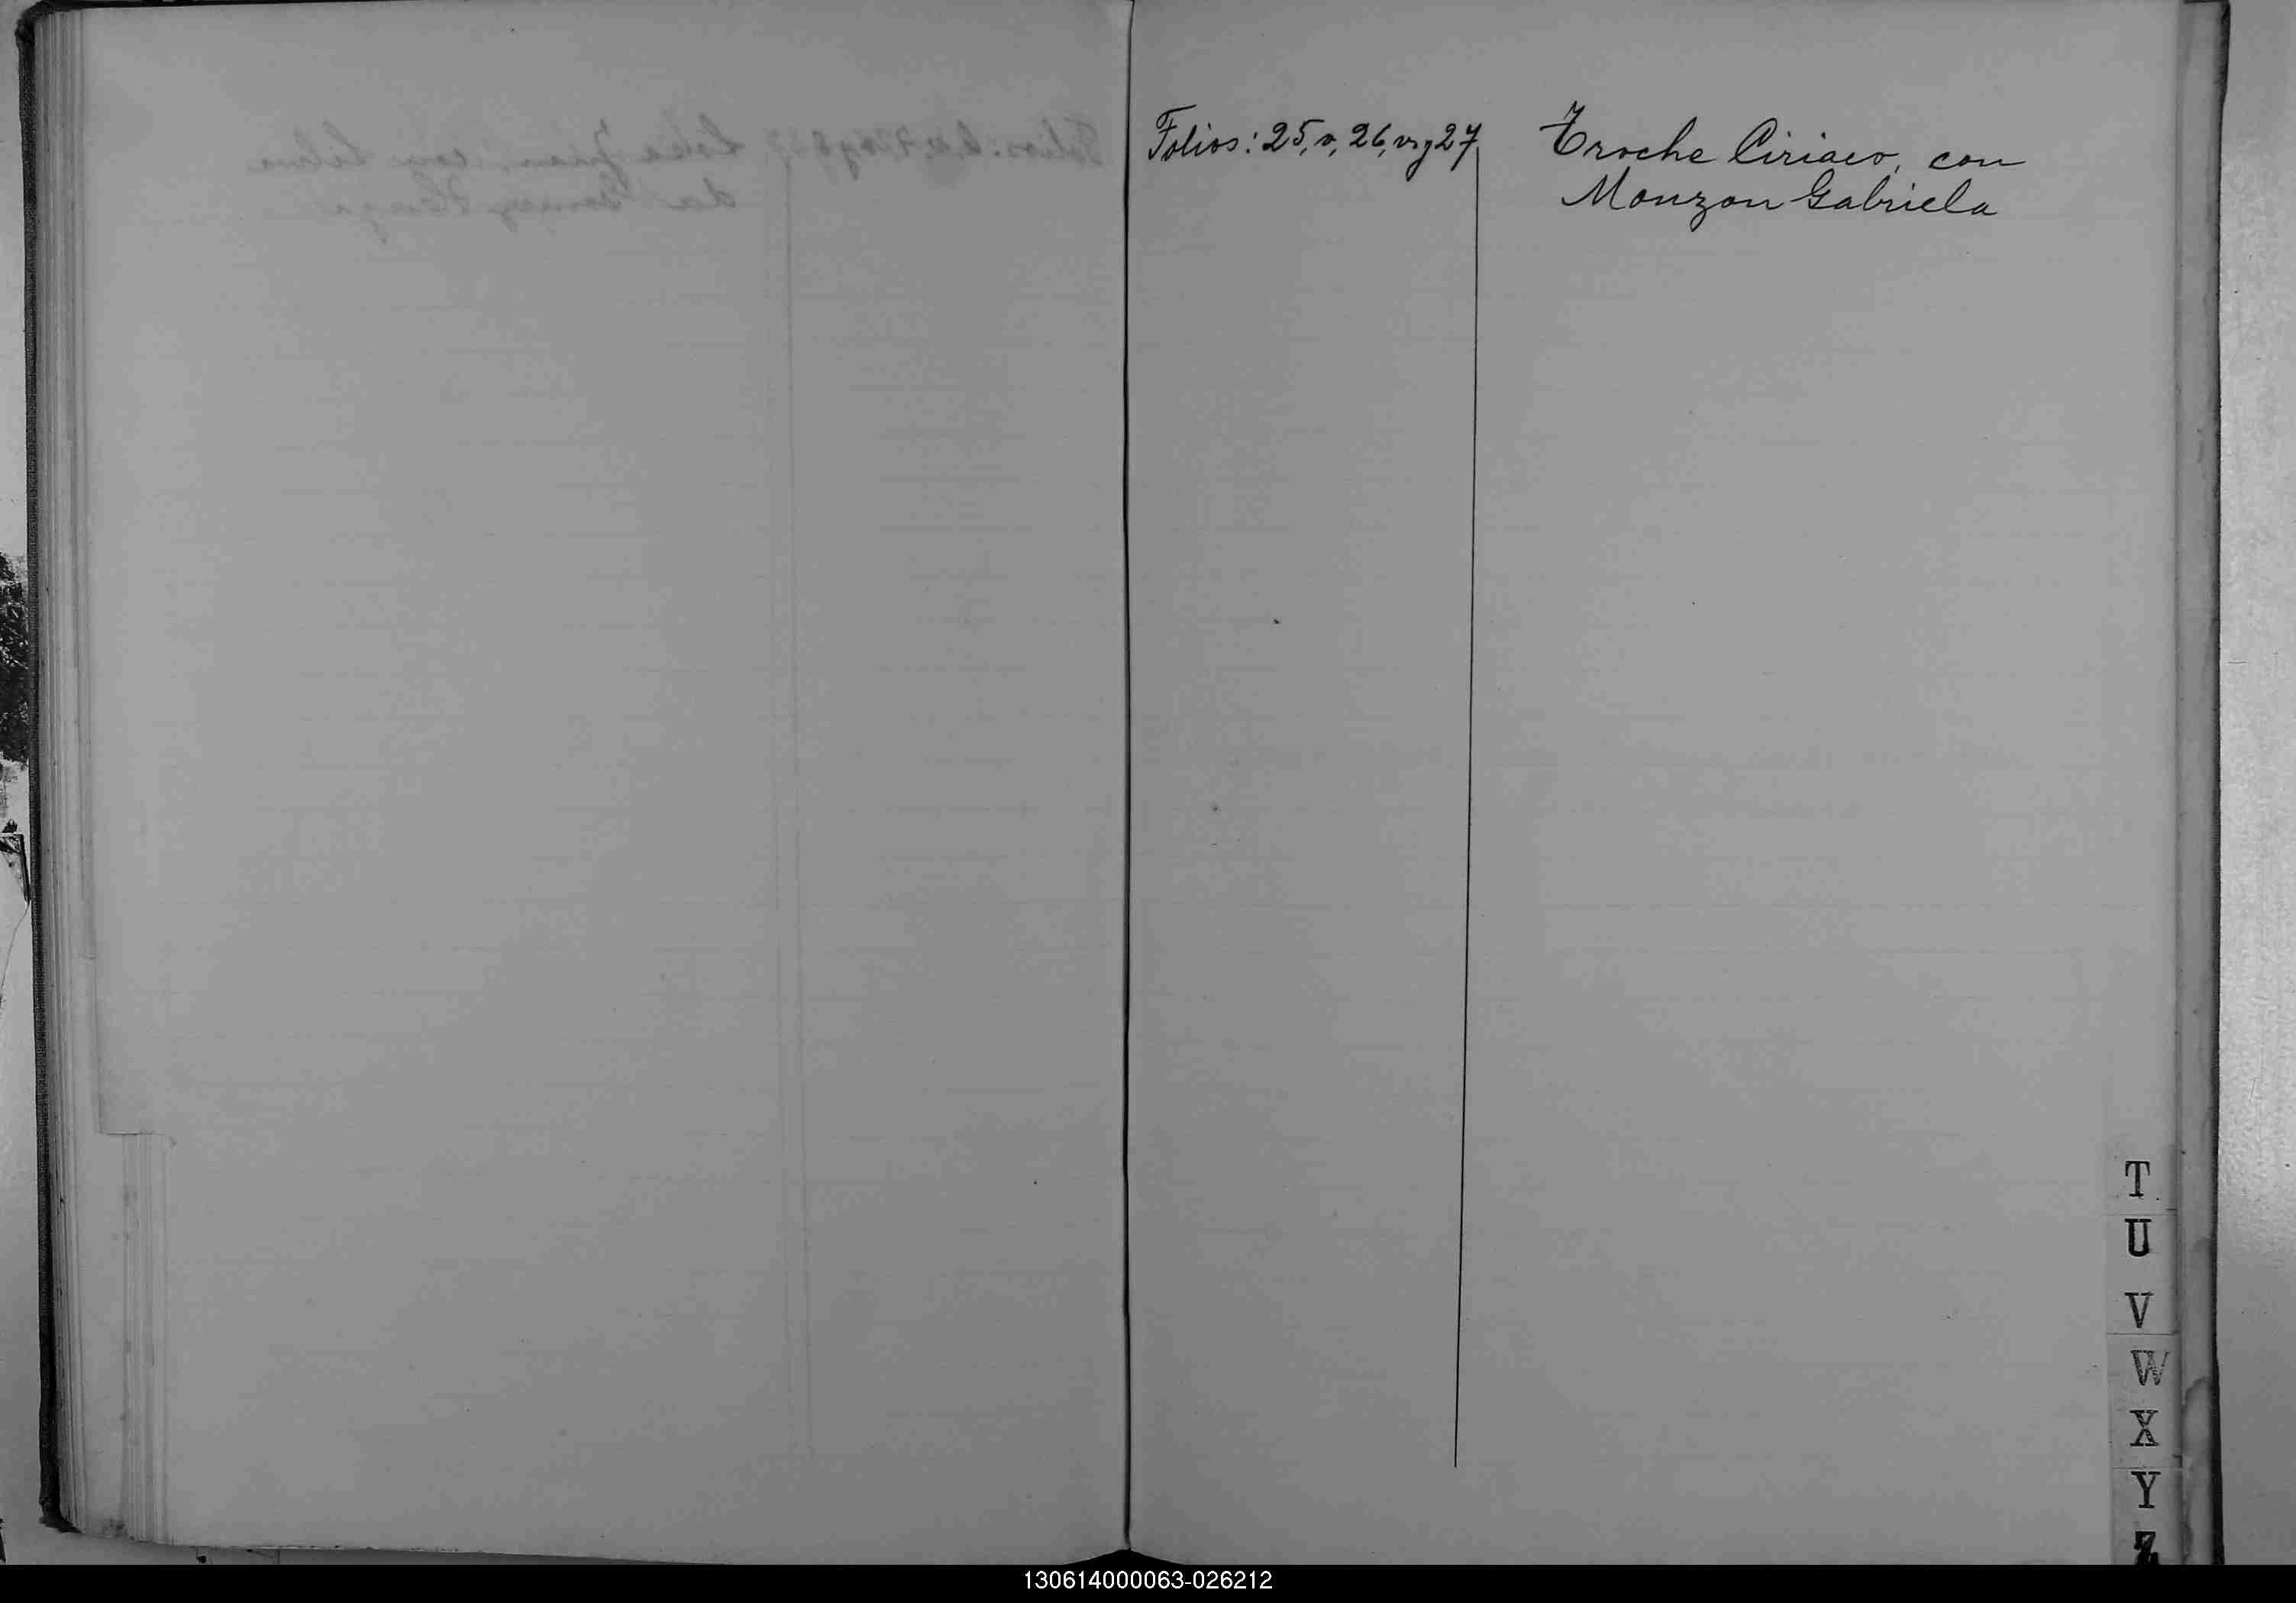 Folios: 25, v, 26, v, y 27
Troche Ciriaco, con
Monzon Gabriela
T
U
V
W
X
Y
Z
130614000063-026212